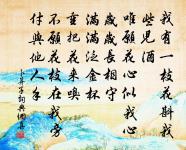 我有一枝花斟我
些兒酒
唯願花心似我心
歲歲長相守
滿滿泛金杯
重把花來嗅
不願花枝在我旁
付與他人手